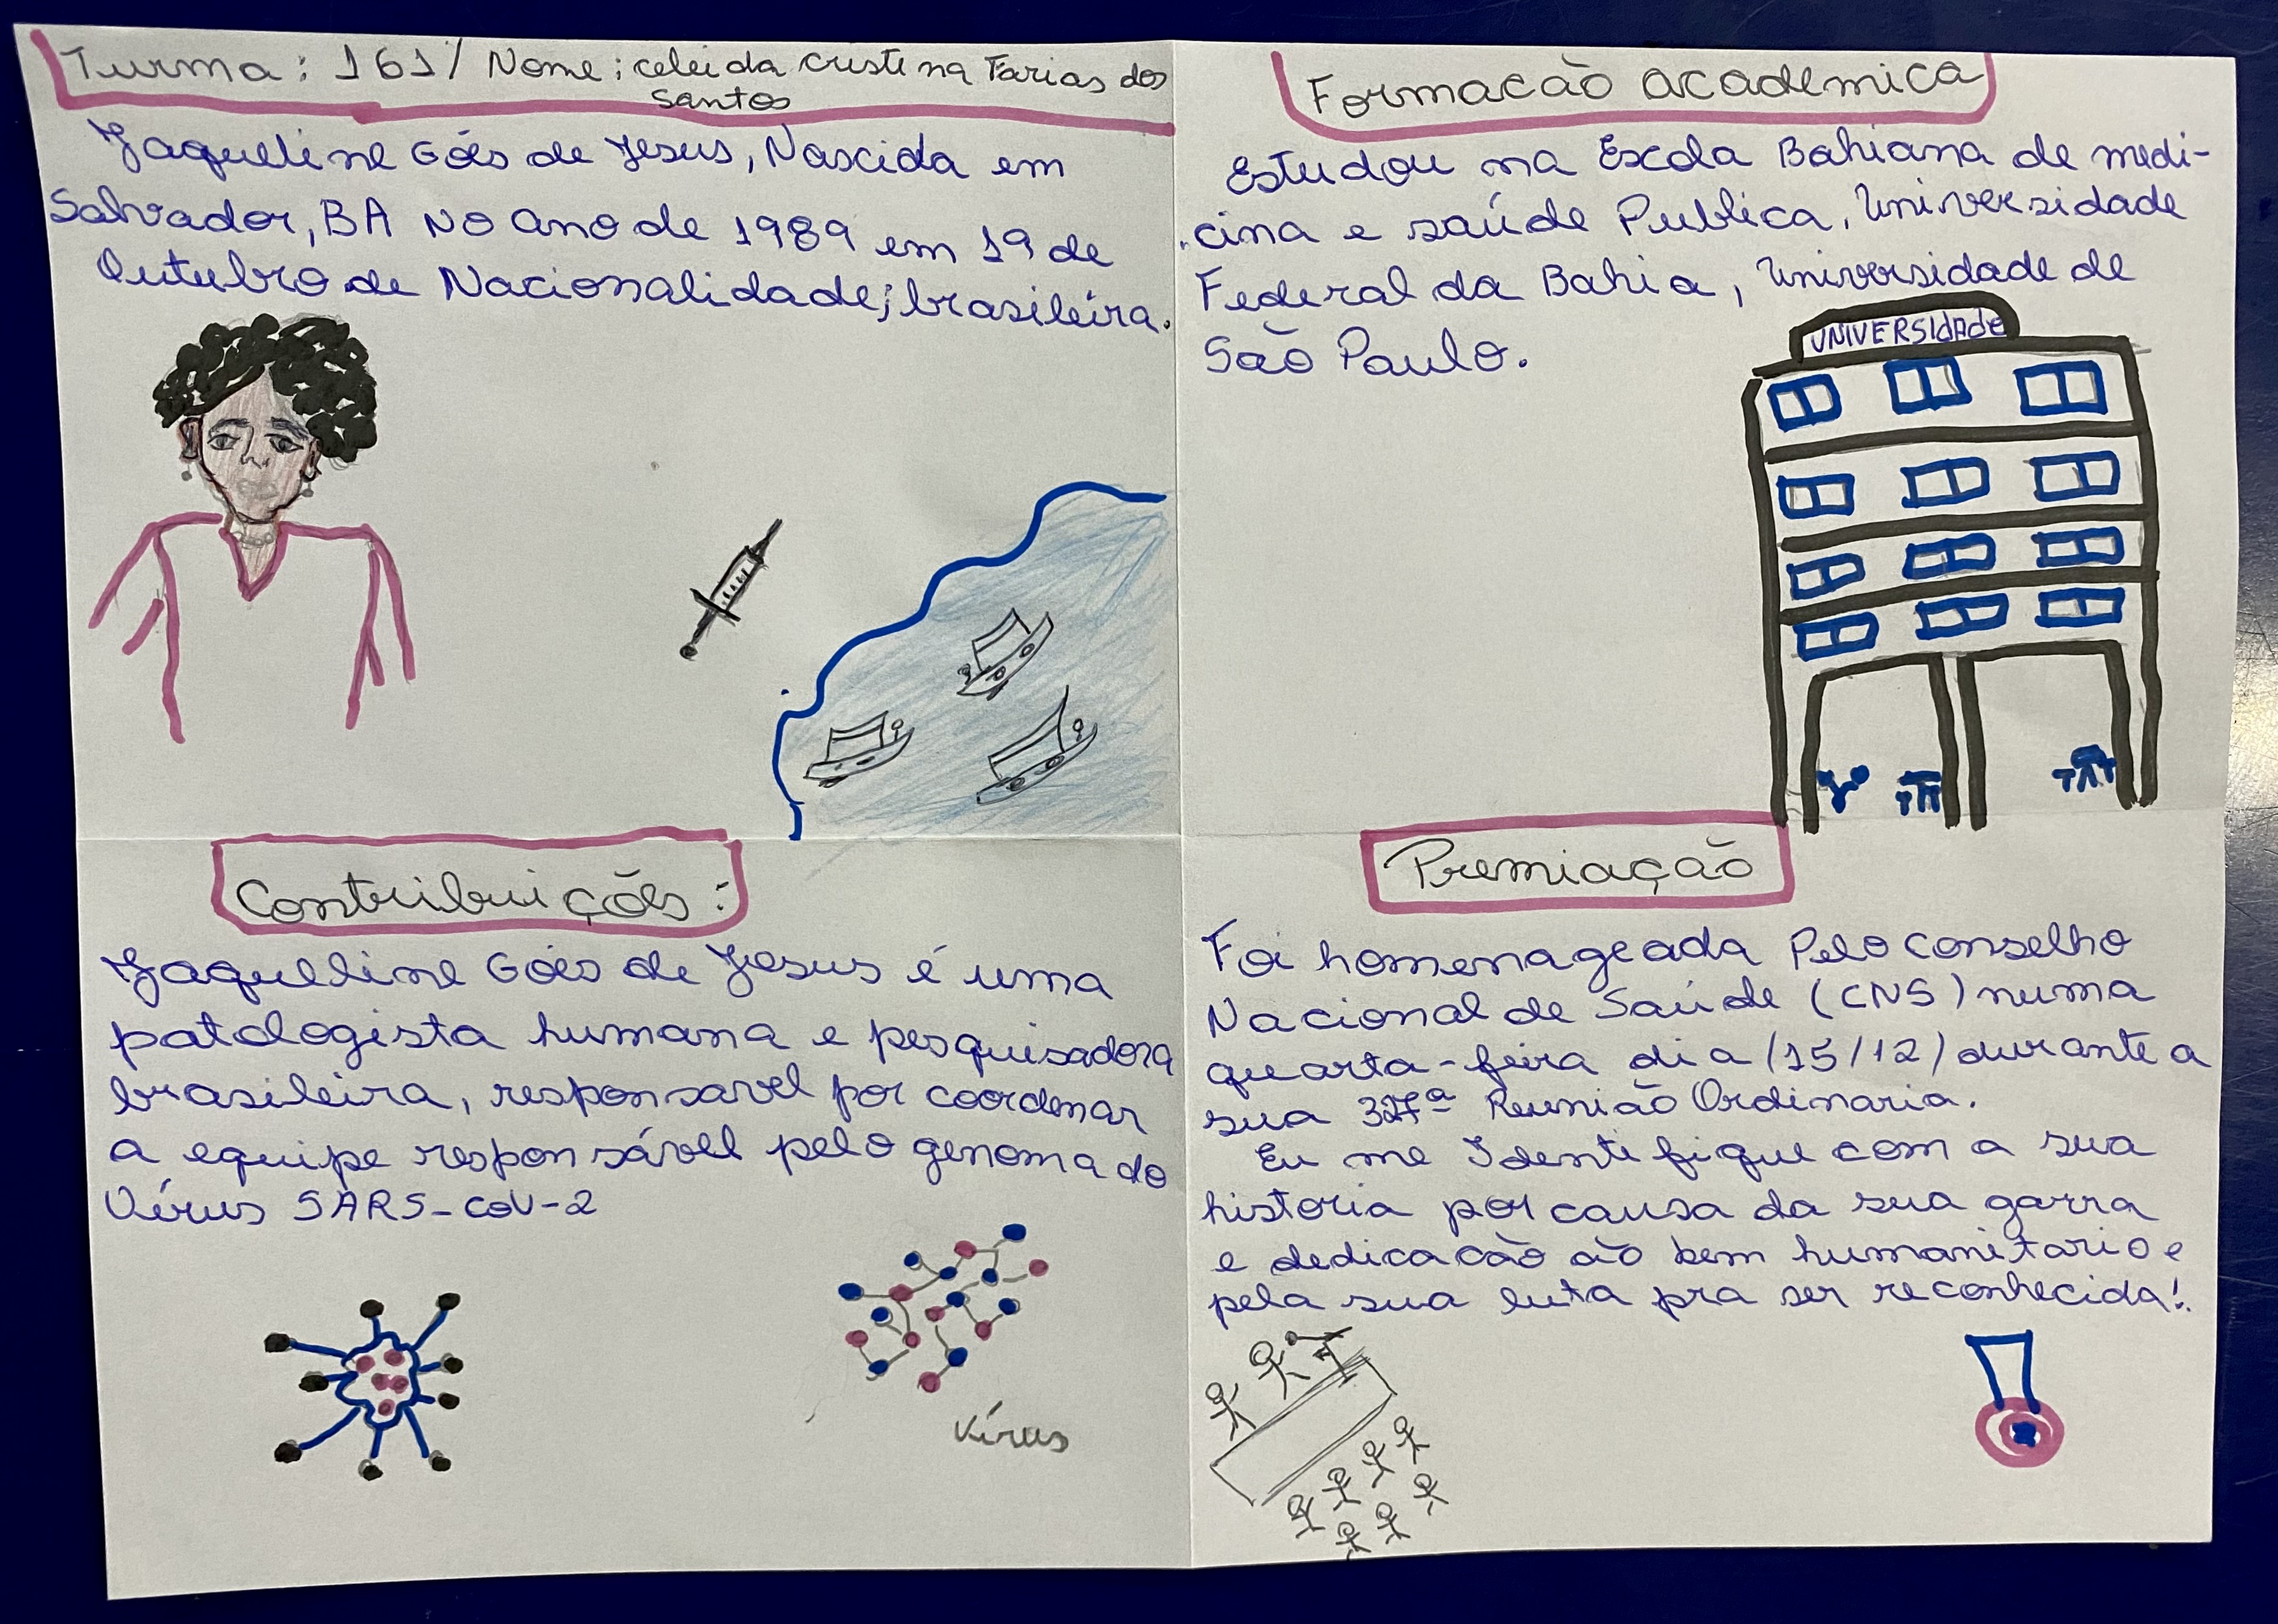 Turma: 161 / Nome: celeida cristina Farias dos
Santos
Jaqueline Góes de Jesus, Nascida em
Salvador, BA No ano de 1989 em 19 de
Outubro de Nacionalidade; brasileira.
Formacão academica
Estudou na Escola Bahiana de medi-
cina e saúde Publica, Universidade
Federal da Bahia, Universidade de
São Paulo.
UNIVERSIdAdE
Contribuições:
Jaqueline Góes de Jesus é uma
patologista humana e pesquisadora
brasileira, responsavel por coordenar
a equipe responsável pelo genoma do
Vírus SARS-coV-2
Vírus
Premiação
Foi homenageada Pelo conselho
Nacional de Saúde (CNS) numa
quarta-feira dia (15/12) durante a
sua 327ª Reunião Ordinaria.
Eu me Identifique com a sua
historia por causa da sua garra
e dedicacão ão bem humanitario e
pela sua luta pra ser reconhecida!